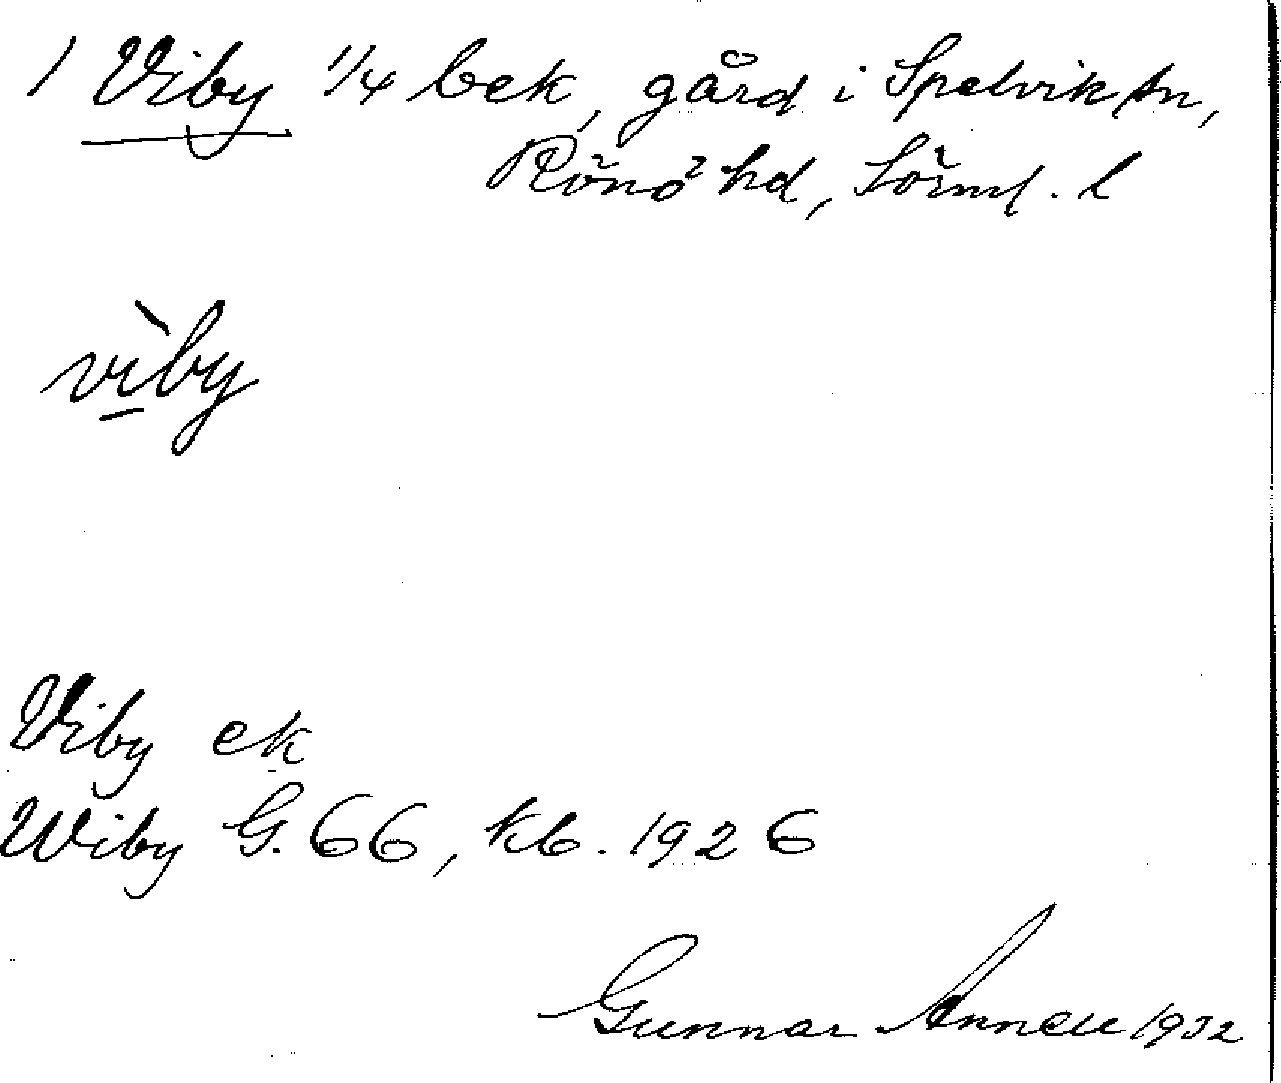 1 Viby 1/4 bek, gård i Spelvik sn,
Rönö hd, Sörml. l
vìby
Viby ek
Wiby G. 66, kb. 1926
Gunnar Annell 1932